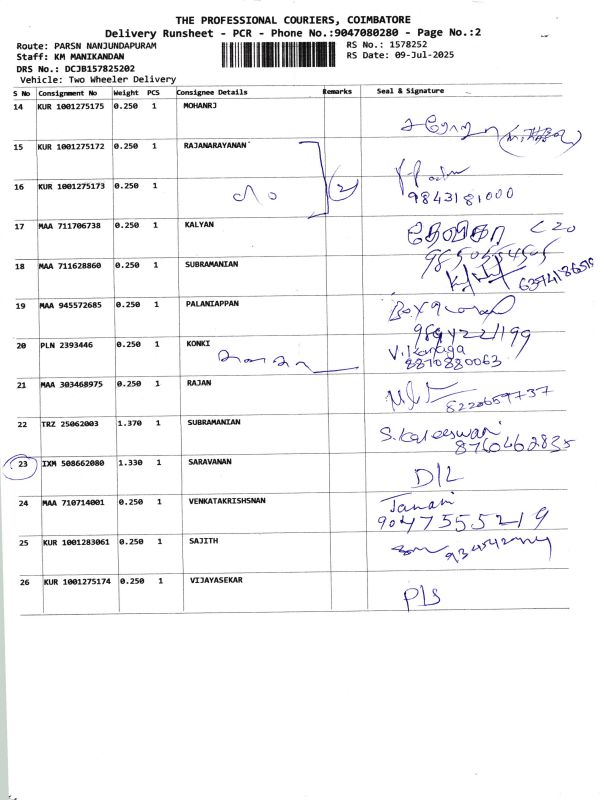 THE PROFESSIONAL COURIERS, COIMBATORE
Delivery Runsheet - PCR - Phone No.:9047080280 - Page No.:2
Route: PARSN NANJUNDAPURAM
RS No.: 1578252
Staff: KM MANIKANDAN
RS Date: 09-Jul-2025
DRS No.: DCJB157825202
Vehicle: Two Wheeler Delivery
S No Consignment No Weight PCS Consignee Details Remarks Seal & Signature
14 KUR 1001275175 0.250 1 MOHANRJ
15 KUR 1001275172 0.250 1 RAJANARAYANAN
16 KUR 1001275173 0.250 1 (2) 9843181000
17 MAA 711706738 0.250 1 KALYAN தேவிகா C20
18 MAA 711628860 0.250 1 SUBRAMANIAN
19 MAA 945572685 0.250 1 PALANIAPPAN
20 PLN 2393446 0.250 1 KONKI V. Kanaga
8870880063
21 MAA 303468975 0.250 1 RAJAN 8220659737
22 TRZ 25062003 1.370 1 SUBRAMANIAN S. Kaleeswari
8760462835
23 IXM 508662080 1.330 1 SARAVANAN D/L
24 MAA 710714001 0.250 1 VENKATAKRISHSNAN Janani
9047555219
25 KUR 1001283061 0.250 1 SAJITH
26 KUR 1001275174 0.250 1 VIJAYASEKAR P/S